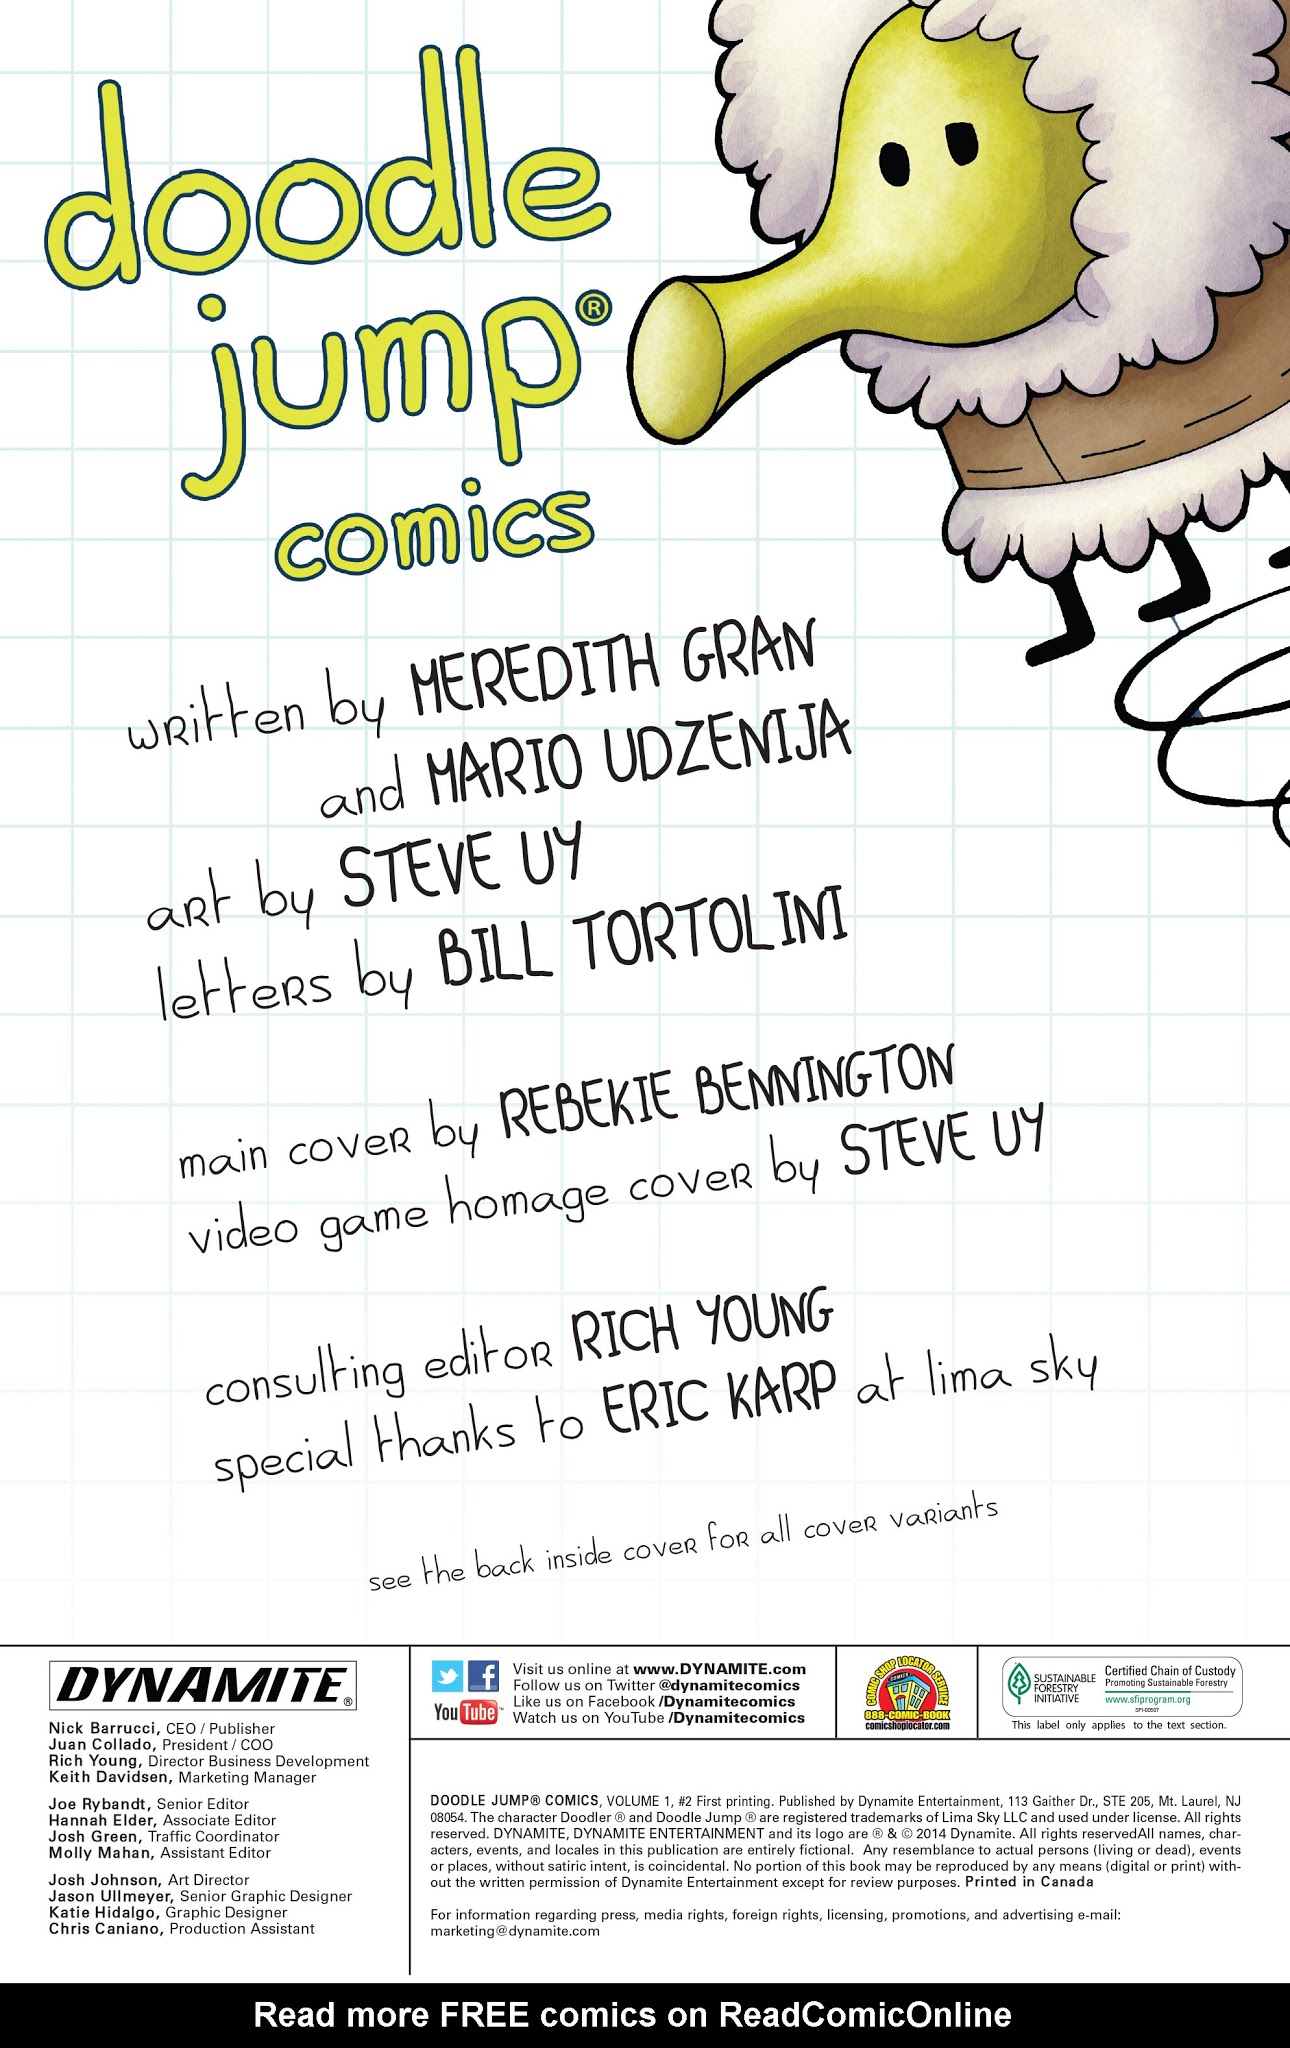 doodle
jump®
comics
written by MEREDITH GRAN
and MARIO UDZENIJA
art by STEVE UY
letters by BILL TORTOLINI
main cover by REBEKIE BENNINGTON
video game homage cover by STEVE UY
consulting editor RICH YOUNG
special thanks to ERIC KARP at lima sky
see the back inside cover for all cover variants
DYNAMITE®
Nick Barrucci, CEO / Publisher
Juan Collado, President / COO
Rich Young, Director Business Development
Keith Davidsen, Marketing Manager
Joe Rybandt, Senior Editor
Hannah Elder, Associate Editor
Josh Green, Traffic Coordinator
Molly Mahan, Assistant Editor
Josh Johnson, Art Director
Jason Ullmeyer, Senior Graphic Designer
Katie Hidalgo, Graphic Designer
Chris Caniano, Production Assistant
Visit us online at www.DYNAMITE.com
Follow us on Twitter @dynamitecomics
Like us on Facebook /Dynamitecomics
You Tube™ Watch us on YouTube /Dynamitecomics
COMIC SHOP LOCATOR SERVICE
COMICS
888-COMIC-BOOK
comicshoplocator.com
SUSTAINABLE
FORESTRY
INITIATIVE
Certified Chain of Custody
Promoting Sustainable Forestry
www.sfiprogram.org
SFI-00507
This label only applies to the text section.
DOODLE JUMP® COMICS, VOLUME 1, #2 First printing. Published by Dynamite Entertainment, 113 Gaither Dr., STE 205, Mt. Laurel, NJ
08054. The character Doodler ® and Doodle Jump ® are registered trademarks of Lima Sky LLC and used under license. All rights
reserved. DYNAMITE, DYNAMITE ENTERTAINMENT and its logo are ® & © 2014 Dynamite. All rights reservedAll names, char-
acters, events, and locales in this publication are entirely fictional. Any resemblance to actual persons (living or dead), events
or places, without satiric intent, is coincidental. No portion of this book may be reproduced by any means (digital or print) with-
out the written permission of Dynamite Entertainment except for review purposes. Printed in Canada
For information regarding press, media rights, foreign rights, licensing, promotions, and advertising e-mail:
marketing@dynamite.com
Read more FREE comics on ReadComicOnline